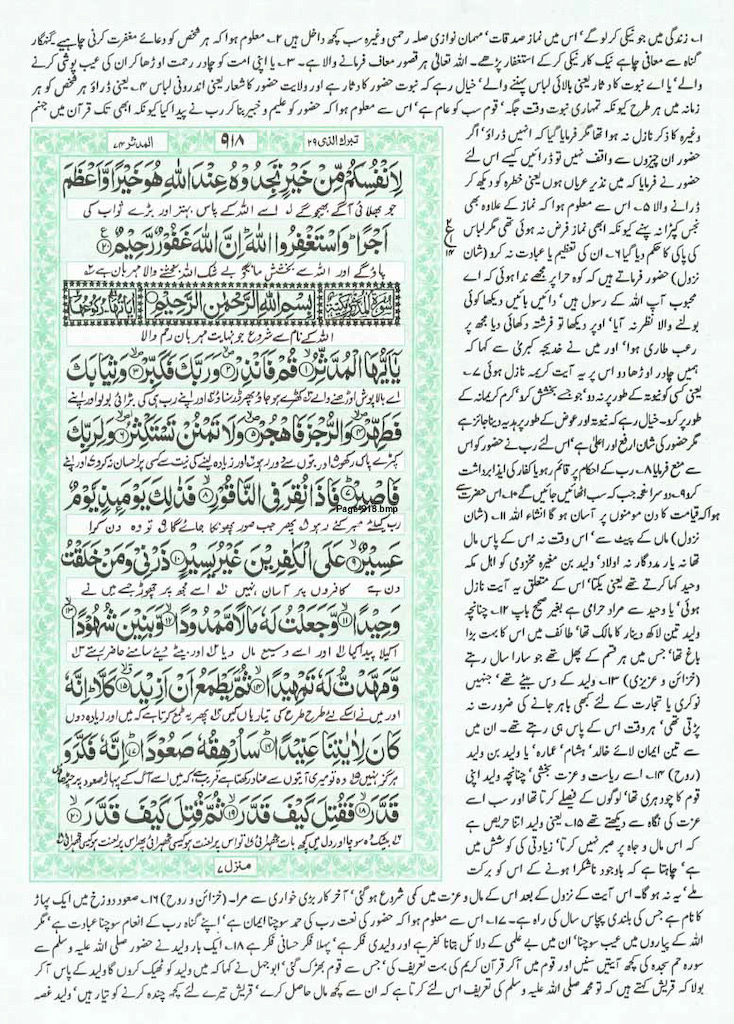 ۱؎ زندگی میں جو نیکی کر لو گے‘ اس میں نماز صدقات‘ مہمان نوازی صلہ رحمی وغیرہ سب کچھ داخل ہیں ۲؎ معلوم ہوا کہ ہر شخص کو دعائے مغفرت کرنی چاہیے۔ گنہگار
گناہ سے معافی چاہے نیک کار نیکی کر کے استغفار پڑھے۔ اللہ تعالیٰ ہر قصور معاف فرمانے والا ہے۔ ۳؎ یا اپنی امت کو چادر رحمت اوڑھا کر ان کی عیب پوشی کرنے
والے‘ یا اے نبوت کا دثار یعنی بالائی لباس پہننے والے‘ خیال رہے کہ نبوت حضور کا دثار ہے اور ولایت حضور کا شعار یعنی اندرونی لباس ۴؎ یعنی ڈراؤ ہر شخص کو ہر
زمانہ میں ہر طرح کیونکہ تمہاری نبوت وقت جگہ‘ قوم سب کو عام ہے‘ اس سے معلوم ہوا کہ حضور کو علیم و خبیر بنا کر رب نے پیدا کیا کیونکہ ابھی تک قرآن میں جنم
تبٰرک الذی ۲۹
۹۱۸
المدثر ۷۴
لِاَنْفُسِكُمْ مِّنْ خَيْرٍ تَجِدُوْهُ عِنْدَ اللّٰهِ هُوَ خَيْرًا وَّاَعْظَمَ
جو بھلائی آگے بھیجو گے ۱؎ اسے اللہ کے پاس بہتر اور بڑے ثواب کی
اَجْرًا ؕ وَاسْتَغْفِرُوا اللّٰهَ ؕ اِنَّ اللّٰهَ غَفُوْرٌ رَّحِيْمٌ ۲۰
پاؤ گے اور اللہ سے بخشش مانگو بے شک اللہ بخشنے والا مہربان ہے ۲؎
بِسْمِ اللّٰهِ الرَّحْمٰنِ الرَّحِيْمِ
اللہ کے نام سے شروع جو نہایت مہربان رحم والا
يٰۤاَيُّهَا الْمُدَّثِّرُ ۱ قُمْ فَاَنْذِرْ ۲ وَرَبَّكَ فَكَبِّرْ ۳ وَثِيَابَكَ
اے بالا پوش اوڑھنے والے ۳؎ کھڑے ہو جاؤ پھر ڈر سناؤ ۴؎ اور اپنے رب ہی کی بڑائی بولو اور اپنے
فَطَهِّرْ ۴ وَالرُّجْزَ فَاهْجُرْ ۵ وَلَا تَمْنُنْ تَسْتَكْثِرُ ۶ وَلِرَبِّكَ
کپڑے پاک رکھو ۵؎ اور بتوں سے دور رہو ۶؎ اور زیادہ لینے کی نیت سے کسی پر احسان نہ کرو ۷؎ اور اپنے
فَاصْبِرْ ۷ فَاِذَا نُقِرَ فِي النَّاقُوْرِ ۸ فَذٰلِكَ يَوْمَىِٕذٍ يَّوْمٌ
رب کیلئے صبر کئے رہو ۸؎ پھر جب صور پھونکا جائے گا ۹؎ تو وہ دن کرا
Page-918.bmp
عَسِيْرٌ ۹ عَلَى الْكٰفِرِيْنَ غَيْرُ يَسِيْرٍ ۱۰ ذَرْنِيْ وَمَنْ خَلَقْتُ
دن ہے کافروں پر آسان نہیں ۱۰؎ اسے مجھ پر چھوڑ جسے میں نے
وَحِيْدًا ۱۱ وَّجَعَلْتُ لَهٗ مَالًا مَّمْدُوْدًا ۱۲ وَّبَنِيْنَ شُهُوْدًا ۱۳
اکیلا پیدا کیا ۱۱؎ اور اسے وسیع مال دیا ۱۲؎ اور بیٹے دیئے سامنے حاضر رہتے ۱۳؎
وَّمَهَّدْتُّ لَهٗ تَمْهِيْدًا ۱۴ ثُمَّ يَطْمَعُ اَنْ اَزِيْدَ ۱۵ كَلَّا ؕ اِنَّهٗ
اور میں نے اسکے لئے طرح طرح کی تیاریاں کیں ۱۴؎ پھر یہ طمع کرتا ہے کہ میں اور زیادہ دوں
كَانَ لِاٰيٰتِنَا عَنِيْدًا ۱۶ سَاُرْهِقُهٗ صَعُوْدًا ۱۷ اِنَّهٗ فَكَّرَ وَ
ہرگز نہیں ۱۵؎ وہ تو میری آیتوں سے عناد رکھتا ہے قریب ہے کہ میں اسے آگ کے پہاڑ صعود پر چڑھاؤں
قَدَّرَ ۱۸ فَقُتِلَ كَيْفَ قَدَّرَ ۱۹ ثُمَّ قُتِلَ كَيْفَ قَدَّرَ ۲۰
بیشک وہ سوچا اور دل میں کچھ بات ٹھہرائی ۱۷؎ تو اس پر لعنت ہو کیسی ٹھہرائی پھر اس پر لعنت ہو کیسی ٹھہرائی
منزل ۷
وغیرہ کا ذکر نازل نہ ہوا تھا مگر فرمایا گیا کہ انہیں ڈراؤ‘ اگر
حضور ان چیزوں سے واقف نہیں تو ڈرائیں کیسے اس لئے
حضور نے فرمایا کہ میں نذیر عریاں ہوں یعنی خطرہ کو دیکھ کر
ڈرانے والا ۵؎ اس سے معلوم ہوا کہ نماز کے علاوہ بھی
نجس کپڑا نہ پہنے کیونکہ ابھی نماز فرض نہ ہوئی تھی مگر لباس
کی پاکی کا حکم دیا گیا ۶؎ ان کی تعظیم یا عبادت نہ کرو (شان
نزول) حضور فرماتے ہیں کہ کوہ حرا پر مجھے ندا ہوئی کہ اے
محبوب آپ اللہ کے رسول ہیں‘ دائیں بائیں دیکھا کوئی
بولنے والا نظر نہ آیا‘ اوپر دیکھا تو فرشتہ دکھائی دیا مجھ پر
رعب طاری ہوا‘ اور میں نے خدیجہ کبریٰ سے کہا کہ
ہمیں چادر اوڑھا دو اس پر یہ آیت کریمہ نازل ہوئی ۷؎
یعنی کسی کو نیوتہ کے طور پر نہ دو‘ جو جسے بخشش کرو‘ کرم کریمانہ کے
طور پر کرو۔ خیال رہے کہ نیوتہ اور عوض کے طور پر ہدیہ دینا جائز ہے
مگر حضور کی شان ارفع اور اعلیٰ ہے‘ اس لئے رب نے حضور کو اس
سے منع فرمایا ۸؎ رب کے احکام پر قائم رہو یا کفار کی ایذا برداشت
کرو ۹؎ دوسرا نفخہ جب کہ سب اٹھائیں جائیں گے ۱۰؎ اس حضرت سے
ہوا کہ قیامت کا دن مومنوں پر آسان ہو گا انشاء اللہ ۱۱؎ (شان
نزول) ماں کے پیٹ سے‘ اس وقت نہ اس کے پاس مال
تھا نہ یار مددگار نہ اولاد‘ ولید بن مغیرہ مخزومی کو اہل مکہ
وحید کہا کرتے تھے یعنی یکتا‘ اس کے متعلق یہ آیت نازل
ہوئی‘ یا وحید سے مراد حرامی ہے بغیر صحیح باپ ۱۲؎ چنانچہ
ولید تین لاکھ دینار کا مالک تھا‘ طائف میں اس کا بہت بڑا
باغ تھا‘ جس میں ہر قسم کے پھل تھے جو سارا سال رہتے
(خزائن و عزیزی) ۱۳؎ ولید کے دس بیٹے تھے‘ جنہیں
نوکری یا تجارت کے لئے کبھی باہر جانے کی ضرورت نہ
پڑتی تھی‘ ہر وقت اس کے پاس ہی رہتے تھے۔ ان میں
سے تین ایمان لائے خالد‘ ہشام‘ عمارہ‘ یا ولید بن ولید
(روح) ۱۴؎ اسے ریاست و عزت بخشی‘ چنانچہ ولید اپنی
قوم کا چودہری تھا‘ لوگوں کے فیصلے کرتا تھا اور سب اسے
عزت کی نگاہ سے دیکھتے تھے ۱۵؎ یعنی ولید اتنا حریص ہے
کہ اس مال و جاہ پر صبر نہیں کرتا‘ زیادتی کی کوشش میں
ہے‘ چاہتا ہے کہ باوجود ناشکرا ہونے کے اس کو برکت
ملے‘ یہ نہ ہو گا۔ اس آیت کے نزول کے بعد اس کے مال و عزت میں کمی شروع ہو گئی‘ آخر کار بڑی خواری سے مرا۔ (خزائن و روح) ۱۶؎ صعود دوزخ میں ایک پہاڑ
کا نام ہے جس کی بلندی پچاس سال کی راہ ہے۔ ۱۷؎ اس سے معلوم ہوا کہ حضور کی نعت رب کی حمد سوچنا ایمان ہے‘ اپنے گناہ رب کے انعام سوچنا عبادت ہے‘ مگر
اللہ کے پیاروں میں عیب سوچنا‘ ان میں بے علمی کے دلائل بتانا کفر ہے اور ولیدی فکر ہے‘ پہلا فکر حسانی فکر ہے ۱۸؎ ایک بار ولید نے حضور صلی اللہ علیہ وسلم سے
سورہ حم سجدہ کی کچھ آیتیں سنیں اور قوم میں آ کر قرآن کریم کی بہت تعریف کی‘ جس سے قوم بھڑک گئی‘ ابوجہل نے کہا کہ میں ولید کو ٹھیک کروں گا ولید کے پاس آ کر
بولا کہ قریش کہتے ہیں کہ تو محمد صلی اللہ علیہ وسلم کی تعریف اس لئے کرتا ہے کہ ان سے کچھ مال حاصل کرے‘ قریش تیرے لئے کچھ چندہ کرنے کو تیار ہیں‘ ولید غصہ